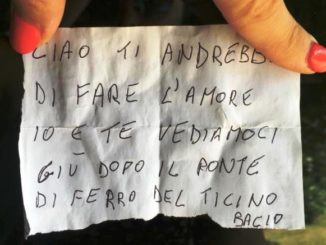 CIAO TI ANDREBB
DI FARE L'AMORE
IO E TE VEDIAMOCI
GIÙ DOPO IL PONTE
DI FERRO DEL TICINO
BACIO